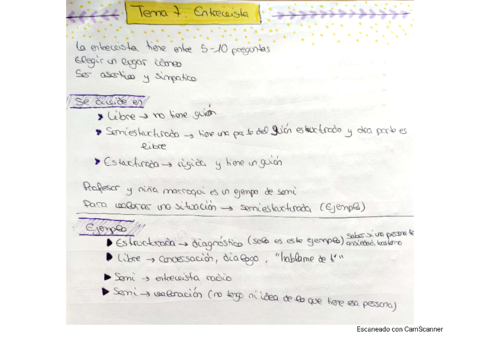 Tema 7. Entrevista
La entrevista tiene entre 5-10 preguntas
Elegir un lugar idóneo
Ser asertivo y simpatico
Se divide en
Libre → no tiene guión
Semiestructurada → tiene una parte del guión estructurado y otra parte es
libre
Estructurada → rigida y tiene un guión
Profesor y niña marroqui es un ejemplo de semi
Para valorar una situación → semiestructurada (Ejemplo)
Ejemplo
Estructurada → diagnóstico (solo es este ejemplo) Saber si una persona
ansiedad, trastorno
Libre → conversación, dialogo, "hablame de ti"
Semi → entrevista radio
Semi → valoración (no tengo ni idea de lo que tiene esa persona)
Escaneado con CamScanner